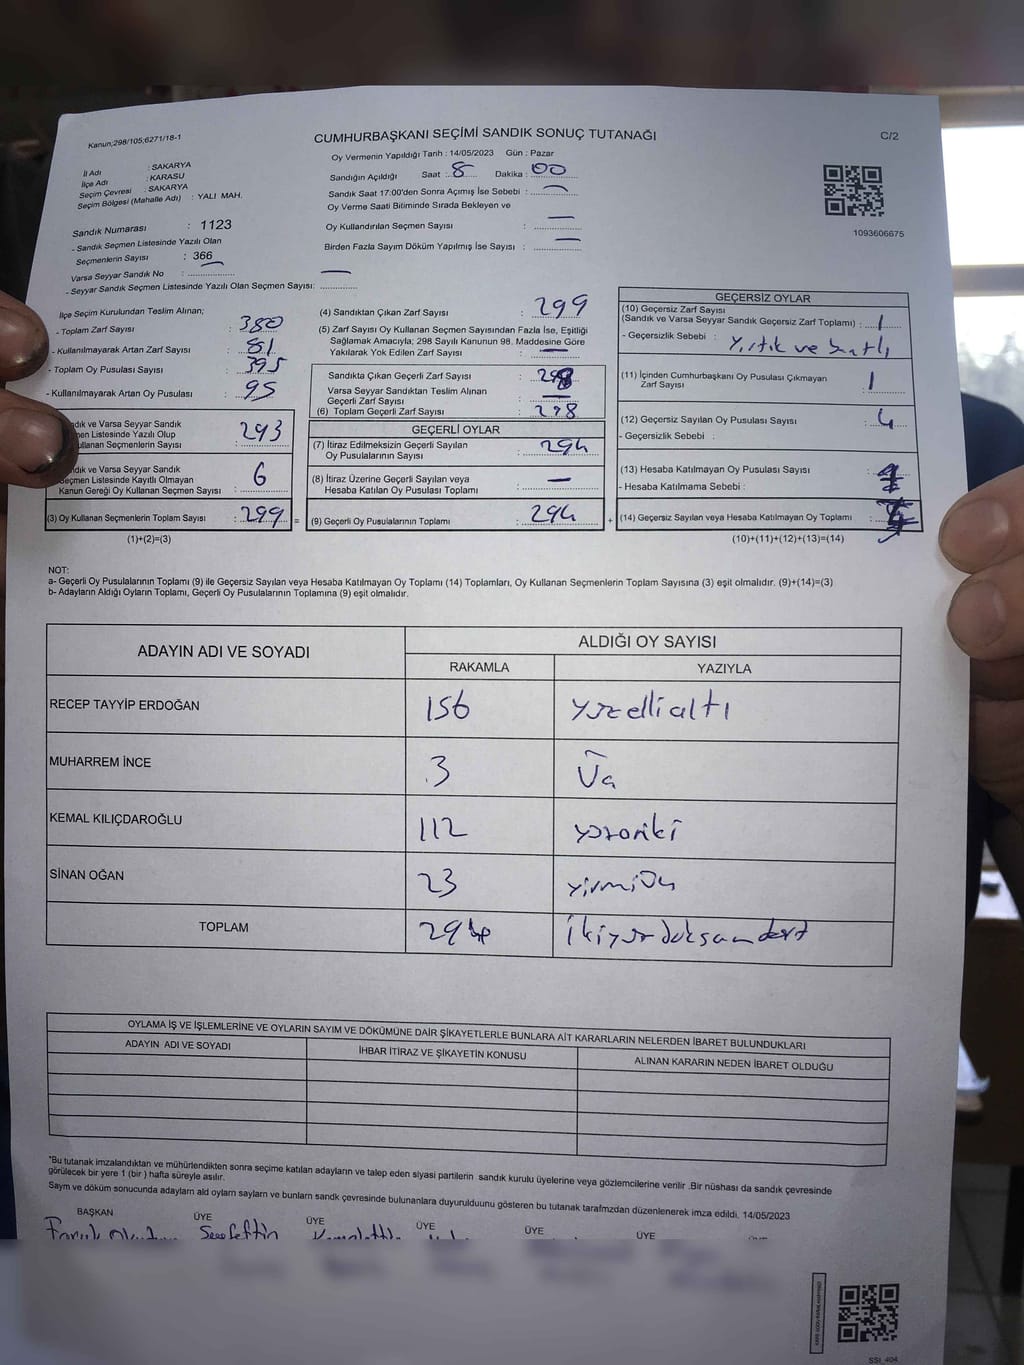 Kanun;298/105;6271/18-1
CUMHURBAŞKANI SEÇİMİ SANDIK SONUÇ TUTANAĞI
C/2
Oy Vermenin Yapıldığı Tarih : 14/05/2023 Gün : Pazar
İl Adı : SAKARYA
İlçe Adı : KARASU
Seçim Çevresi : SAKARYA
Seçim Bölgesi (Mahalle Adı) : YALI MAH.
Sandığın Açıldığı Saat : 8 Dakika : 00
Sandık Saat 17:00'den Sonra Açımış İse Sebebi : —
Oy Verme Saati Bitiminde Sırada Bekleyen ve
Oy Kullandırılan Seçmen Sayısı : —
Birden Fazla Sayım Döküm Yapılmış İse Sayısı : —
1093606675
Sandık Numarası : 1123
- Sandık Seçmen Listesinde Yazılı Olan
Seçmenlerin Sayısı : 366
Varsa Seyyar Sandık No : —
- Seyyar Sandık Seçmen Listesinde Yazılı Olan Seçmen Sayısı: —
İlçe Seçim Kurulundan Teslim Alınan;
- Toplam Zarf Sayısı : 380
- Kullanılmayarak Artan Zarf Sayısı : 81
- Toplam Oy Pusulası Sayısı : 395
- Kullanılmayarak Artan Oy Pusulası : 95
ve Varsa Seyyar Sandık
Listesinde Yazılı Olup
Seçmenlerin Sayısı : 293
ve Varsa Seyyar Sandık
Seçmen Listesinde Kayıtlı Olmayan
Kanun Gereği Oy Kullanan Seçmen Sayısı : 6
(3) Oy Kullanan Seçmenlerin Toplam Sayısı : 299 =
(1)+(2)=(3)
(4) Sandıktan Çıkan Zarf Sayısı : 299
(5) Zarf Sayısı Oy Kullanan Seçmen Sayısından Fazla İse, Eşitliği
Sağlamak Amacıyla; 298 Sayılı Kanunun 98. Maddesine Göre
Yakılarak Yok Edilen Zarf Sayısı : —
Sandıkta Çıkan Geçerli Zarf Sayısı : 298
Varsa Seyyar Sandıktan Teslim Alınan
Geçerli Zarf Sayısı : —
(6) Toplam Geçerli Zarf Sayısı : 298
GEÇERLİ OYLAR
(7) İtiraz Edilmeksizin Geçerli Sayılan
Oy Pusulalarının Sayısı : 294
(8) İtiraz Üzerine Geçerli Sayılan veya
Hesaba Katılan Oy Pusulası Toplamı : —
(9) Geçerli Oy Pusulalarının Toplamı : 294 +
GEÇERSİZ OYLAR
(10) Geçersiz Zarf Sayısı
(Sandık ve Varsa Seyyar Sandık Geçersiz Zarf Toplamı) : 1
- Geçersizlik Sebebi : Yırtık ve
(11) İçinden Cumhurbaşkanı Oy Pusulası Çıkmayan
Zarf Sayısı : 1
(12) Geçersiz Sayılan Oy Pusulası Sayısı : 4
- Geçersizlik Sebebi :
(13) Hesaba Katılmayan Oy Pusulası Sayısı :
- Hesaba Katılmama Sebebi :
(14) Geçersiz Sayılan veya Hesaba Katılmayan Oy Toplamı :
(10)+(11)+(12)+(13)=(14)
NOT:
a- Geçerli Oy Pusulalarının Toplamı (9) ile Geçersiz Sayılan veya Hesaba Katılmayan Oy Toplamı (14) Toplamları, Oy Kullanan Seçmenlerin Toplam Sayısına (3) eşit olmalıdır. (9)+(14)=(3)
b- Adayların Aldığı Oyların Toplamı, Geçerli Oy Pusulalarının Toplamına (9) eşit olmalıdır.
ADAYIN ADI VE SOYADI ALDIĞI OY SAYISI
RAKAMLA YAZIYLA
RECEP TAYYİP ERDOĞAN 156 yüzellialtı
MUHARREM İNCE 3 Üç
KEMAL KILIÇDAROĞLU 112 yüzoniki
SİNAN OĞAN 23 yirmiüç
TOPLAM 294 ikiyüz doksandört
OYLAMA İŞ VE İŞLEMLERİNE VE OYLARIN SAYIM VE DÖKÜMÜNE DAİR ŞİKAYETLERLE BUNLARA AİT KARARLARIN NELERDEN İBARET BULUNDUKLARI
ADAYIN ADI VE SOYADI İHBAR İTİRAZ VE ŞİKAYETİN KONUSU ALINAN KARARIN NEDEN İBARET OLDUĞU
*Bu tutanak imzalandıktan ve mühürlendikten sonra seçime katılan adayların ve talep eden siyasi partilerin sandık kurulu üyelerine veya gözlemcilerine verilir .Bir nüshası da sandık çevresinde
görülecek bir yere 1 (bir ) hafta süreyle asılır.
Sayım ve döküm sonucunda adayların ald oyların sayları ve bunların sandk çevresinde bulunanlara duyurulduunu gösteren bu tutanak tarafmzdan düzenlenerek imza edildi. 14/05/2023
BAŞKAN ÜYE ÜYE ÜYE ÜYE ÜYE
SSI_404